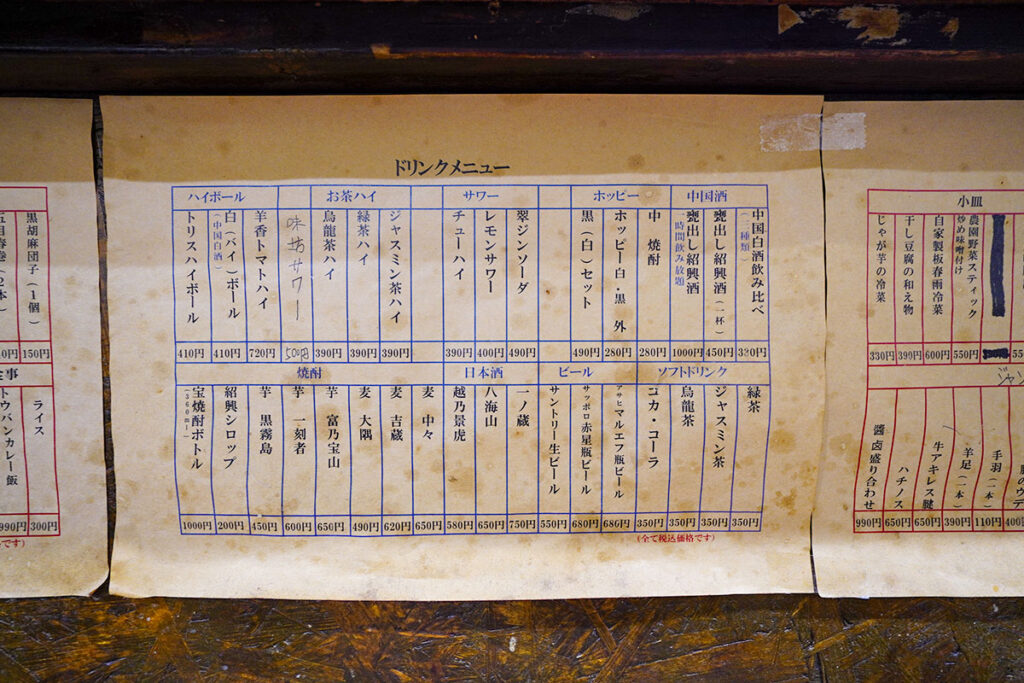 黒胡麻団子(1個)
150円
ライス
300円
トウバンカレー飯
990円
ドリンクメニュー
ハイボール
トリスハイボール
410円
白(バイ)ボール
(中国白酒)
410円
羊香トマトハイ
720円
味坊サワー
500円
お茶ハイ
烏龍茶ハイ
390円
緑茶ハイ
390円
ジャスミン茶ハイ
390円
サワー
チューハイ
390円
レモンサワー
400円
翠ジンソーダ
490円
ホッピー
黒(白)セット
490円
ホッピー白・黒 外
280円
中 焼酎
280円
中国酒
甕出し紹興酒
一時間飲み放題
1000円
甕出し紹興酒(一杯)
450円
中国白酒飲み比べ
(三種類)
焼酎
宝焼酎ボトル
(360ml)
1000円
紹興シロップ
200円
芋 黒霧島
450円
芋 一刻者
600円
芋 富乃宝山
650円
麦 大隅
490円
麦 吉蔵
620円
麦 中々
650円
日本酒
越乃景虎
580円
八海山
650円
一ノ蔵
750円
ビール
サントリー生ビール
550円
サッポロ赤星瓶ビール
680円
アサヒマルエフ瓶ビール
680円
ソフトドリンク
コカ・コーラ
350円
烏龍茶
350円
ジャスミン茶
350円
緑茶
350円
(全て税込価格です)
小皿
じゃが芋の冷菜
330円
干し豆腐の和え物
390円
自家製板春雨冷菜
600円
農園野菜スティック
炒め味噌付け
550円
醤卤盛り合わせ
990円
ハチノス
650円
牛アキレス腱
650円
羊足(一本)
390円
手羽(一本)
110円